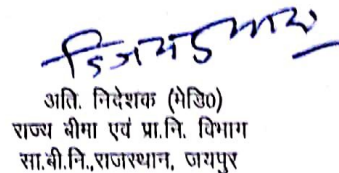 अति. निदेशक (मेडि०)
राज्य बीमा एवं प्रा.नि. विभाग
सा.बी.नि.,राजस्थान, जयपुर